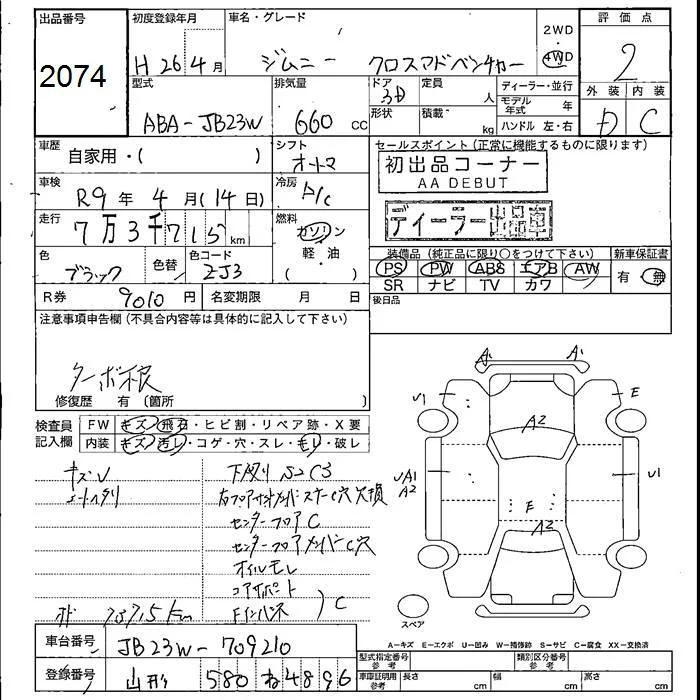 出品番号 初度登録年月 車名・グレード 2WD 評価点
2074 H 26 4月 ジムニー クロスアドベンチャー 4WD 2
型式 排気量 ドア 3D 定員 人 ディーラー・並行 外装 内装
ABA-JB23W 660 cc 形状 積載 kg モデル年式 年 D C
ハンドル 左・右
車歴 自家用・( ) シフト オートマ セールスポイント(正常に機能するものに限ります)
初出品コーナー
AA DEBUT
車検 R9年 4月(14日) 冷房 A/C
ディーラー出品車
走行 7万3千715km 燃料 ガソリン
軽・油
( )
色 ブラック 色替 色コード ZJ3
装備品(純正品に限り○をつけて下さい) 新車保証書
PS PW ABS エアB AW 有 無
SR ナビ TV カワ
R券 9010円 名変期限 月 日 後日品
注意事項申告欄(不具合内容等は具体的に記入して下さい)
修復歴 有(箇所 )
検査員 FW キズ・飛石・ヒビ割・リペア跡・X要
記入欄 内装 キズ・汚レ・コゲ・穴・スレ・モレ・破レ
キズV 下廻り S2 C3
シートヘタリ
センターフロア C
センターフロアメンバーC穴
オイルモレ
コアサポート
Fインパネ C
メーター 73715km
A1 A1
U1 E
A2
A1
A2 U1
E
A2
スペア
A-キズ E-エクボ U-凹み W-補修跡 S-サビ C-腐食 XX-交換済
車台番号 JB23W-709210 型式指定番号 参考 類別区分番号 参考
登録番号 山形 580 ね 4896 車庫証明用 参考 長さ cm 幅 cm 高さ cm